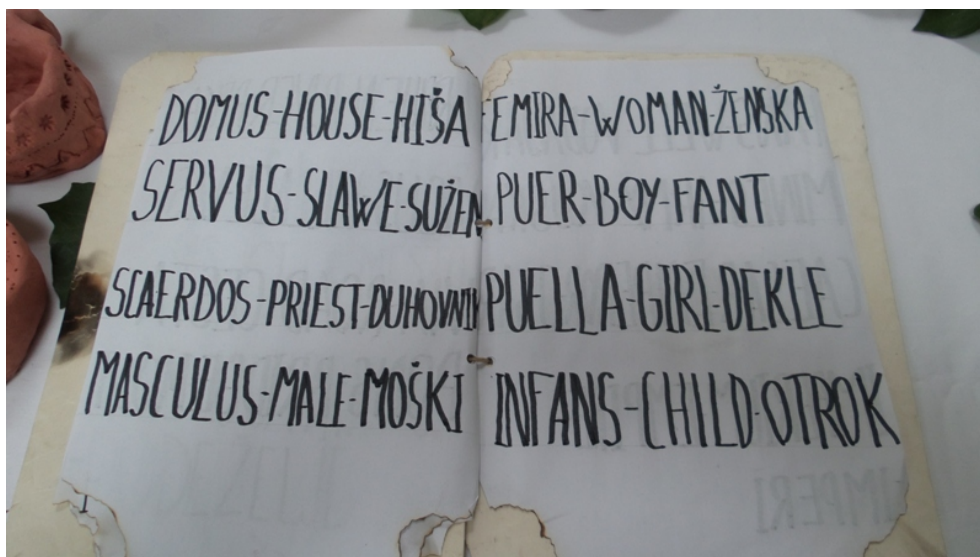 DOMUS-HOUSE-HIŠA
SERVUS-SLAWE-SUŽEN
SCAERDOS-PRIEST-DUHOVNIK
MASCULUS-MALE-MOŠKI
EMIRA-WOMAN-ŽENSKA
PUER-BOY-FANT
PUELLA-GIRL-DEKLE
INFANS-CHILD-OTROK